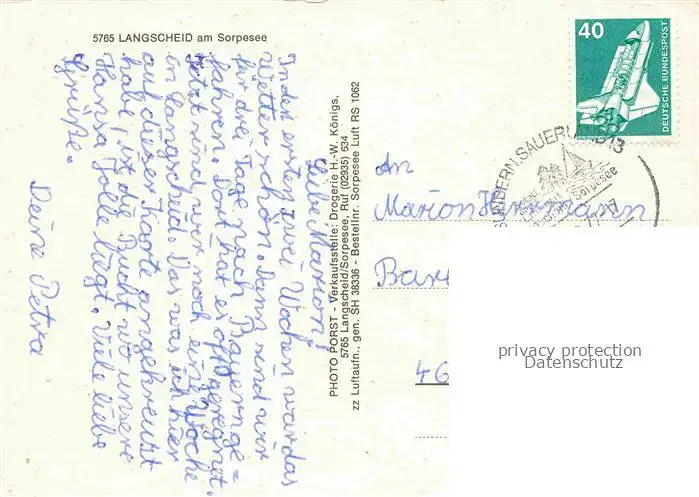 5765 LANGSCHEID am Sorpesee
Liebe Marion!
In den ersten zwei Wochen war das
Wetter schön. Dann sind wir
für drei Tage nach Bayern ge=
fahren. Dort hat es oft geregnet.
Jetzt sind wir noch eine Woche
in Langscheid. Das was ich hier
auf dieser Karte angekreuzt
habe, ist die Bucht wo unsere
Hansa Jolle liegt. Viele liebe
Grüße.
Deine Petra
PHOTO PORST - Verkaufsstelle: Drogerie H.-W. Königs,
5765 Langscheid/Sorpesee, Ruf (02935) 634
zz Luftaufn., gen. SH 38336 - Bestellnr. Sorpesee Luft RS 1062
40
DEUTSCHE BUNDESPOST
SUNDERN, SAUERLAND 13
Sorpesee
An
Marion Herrmann
Bar
46
privacy protection
Datenschutz